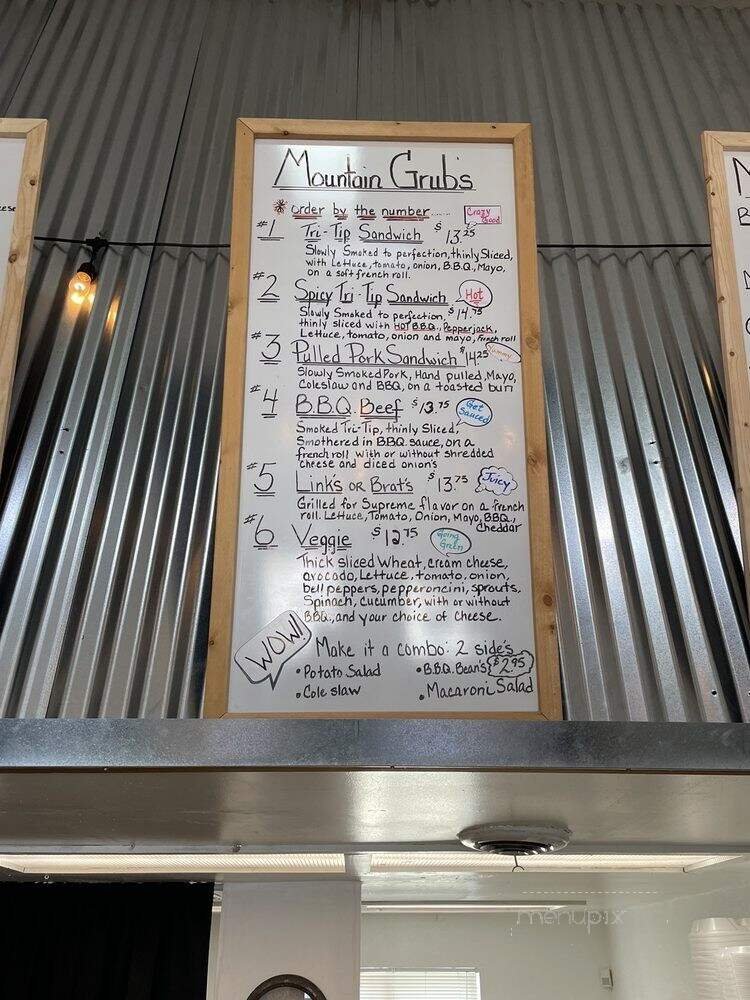 Mountain Grub's
* order by the number......
Crazy Good
#1 Tri-Tip Sandwich $13.25
Slowly Smoked to perfection, thinly Sliced,
with Lettuce, tomato, onion, B.B.Q., Mayo,
on a soft french roll.
#2 Spicy Tri-Tip Sandwich Hot
Slowly Smoked to perfection, $14.75
thinly sliced with HOT B.B.Q., Pepperjack,
Lettuce, tomato, onion and mayo, french roll
#3 Pulled Pork Sandwich $14.25 Yummy
Slowly Smoked Pork, Hand pulled, Mayo,
Coleslaw and BBQ, on a toasted bun
#4 B.B.Q. Beef $13.75 Get Sauced
Smoked Tri-Tip, thinly Sliced,
Smothered in B.B.Q. sauce, on a
french roll with or without shredded
cheese and diced onion's
#5 Link's or Brat's $13.75 Juicy
Grilled for Supreme flavor on a french
roll. Lettuce, Tomato, Onion, Mayo, B.B.Q.,
Cheddar
#6 Veggie $12.75 Going Green
Thick sliced Wheat, cream cheese,
avocado, Lettuce, tomato, onion,
bell peppers, pepperoncini, sprouts,
Spinach, cucumber, with or without
B.B.Q., and your choice of cheese.
WOW! Make it a combo: 2 side's
• Potato Salad • B.B.Q. Bean's $2.95
• Cole slaw • Macaroni Salad
menupix